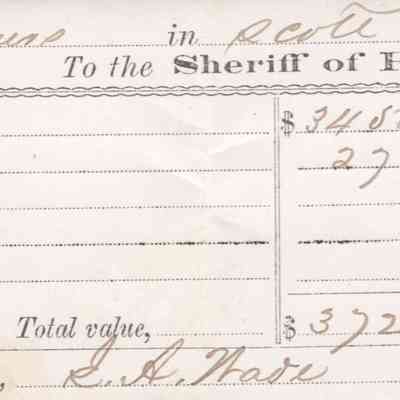 in Scott
To the Sheriff of H
$ 345
27
Total value, $ 372
, S. A. Wade